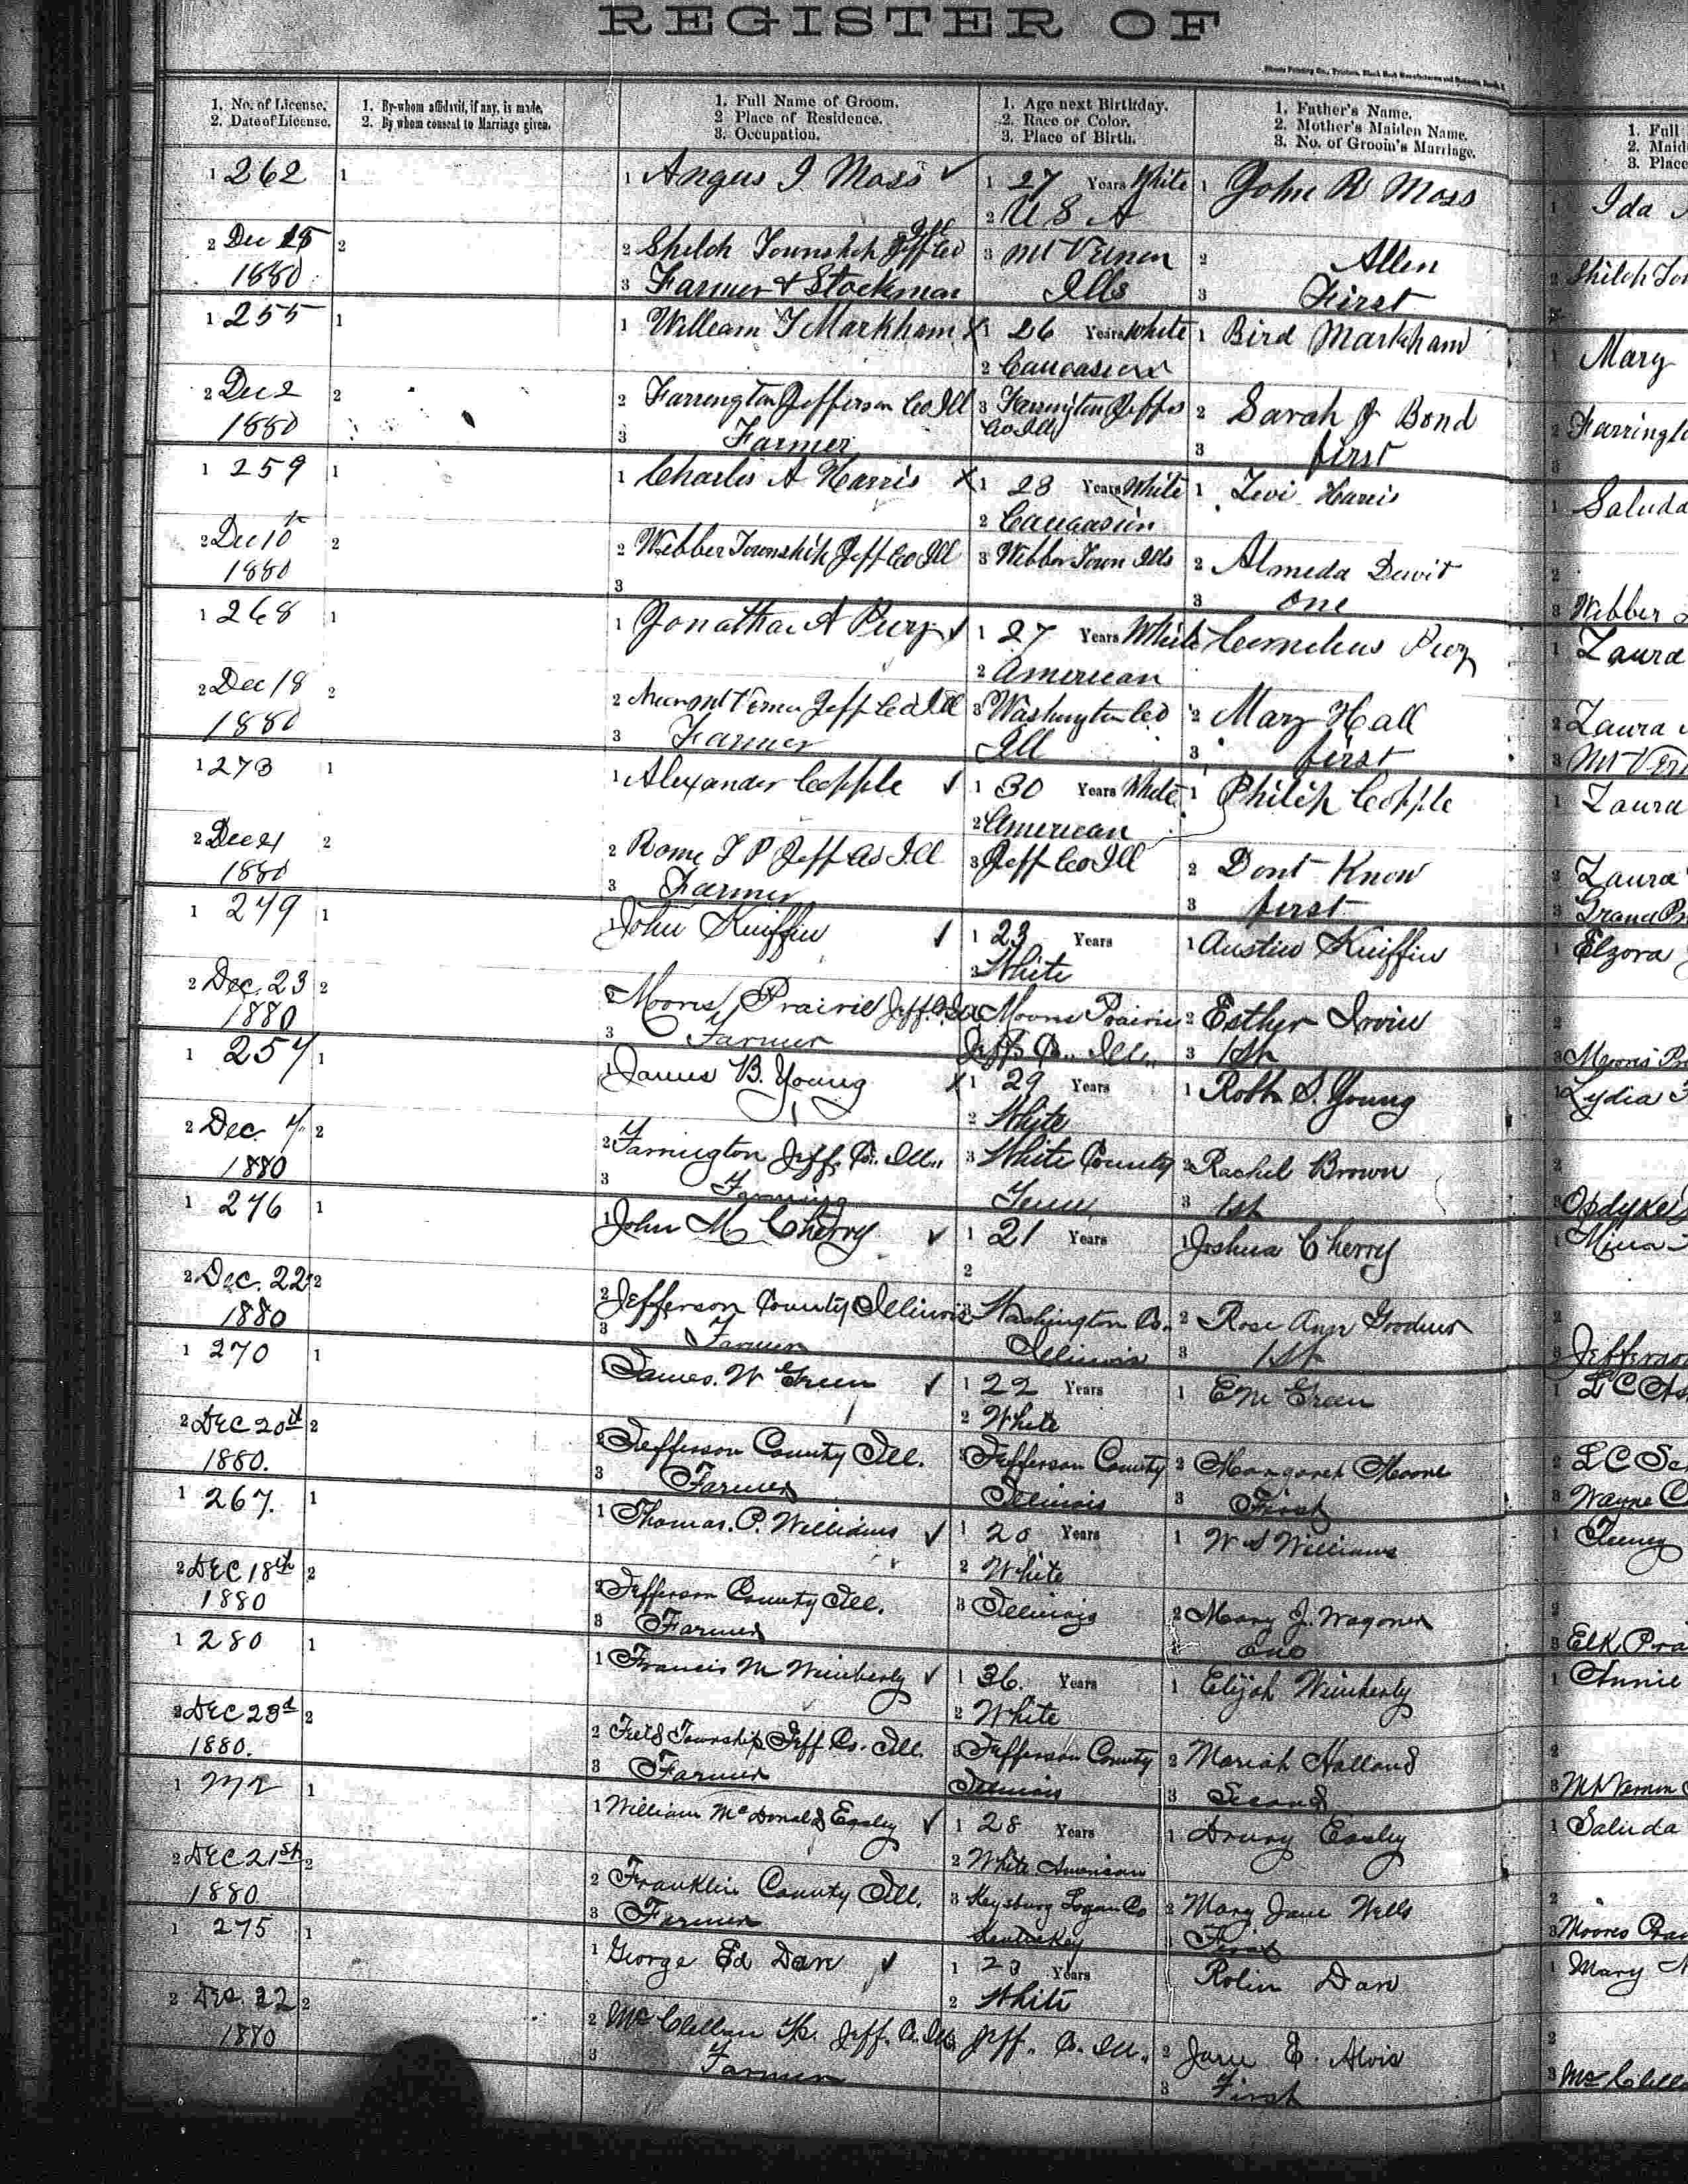 REGISTER OF
1. No. of License.
2. Date of License.
1. By whom affidavit, if any, is made.
2. By whom consent to Marriage given.
1. Full Name of Groom.
2 Place of Residence.
3. Occupation.
1. Age next Birthday.
2. Race or Color.
3. Place of Birth.
1. Father's Name.
2. Mother's Maiden Name.
3. No. of Groom's Marriage.
1. Full
2. Maid
3. Place
1 262 1 1 Angus I Moss ✓ 1 27 Years White 1 John R Moss 1 Ida
2 U S A
2 Dec 15 2 2 Shiloh Township Jeff Co Ill 3 Mt Vernon 2 Allen 2 Shiloh Tow
1880 3 Farmer & Stockman Ills 3 First
1 255 1 1 William T Markham X 1 26 Years White 1 Bird Markham 1 Mary
2 Caucasian
2 Dec 2 2 2 Farrington Jefferson Co Ill 3 Farrington Jeffer 2 Sarah J Bond 2 Farringto
1880 3 Farmer Co Ill 3 first 3
1 259 1 1 Charles A Harris X 1 28 Years White 1 Levi Harris 1 Saluda
2 Caucasian
2 Dec 10 2 2 Webber Township Jeff Co Ill 3 Webber Town Ills 2 Almeda 2
1880 3 3 one 3 Webber
1 268 1 1 Jonathan A ✓ 1 27 Years White Cornelius 1 Laura
2 American
2 Dec 18 2 2 Near Mt Vernon Jeff Co Ill 3 Washington Co 2 Mary Hall 2 Laura
1880 3 Farmer Ill 3 first 3 Mt Vern
1 273 1 1 Alexander Copple ✓ 1 30 Years White 1 Philip Copple 1 Laura
2 American
2 Dec 21 2 2 Rome T P Jeff Co Ill 3 Jeff Co Ill 2 Dont Know 2 Laura
1880 3 Farmer 3 first 3 Grand Pr
1 279 1 1 John Kniffin ✓ 1 23 Years 1 Austin Kniffin 1 Elzora
2 White
2 Dec. 23 2 2 Moores Prairie Jeff. Co Ill Moores Prairie 2 Esther Irvin 2
1880 3 Farmer Jeff. Co. Ill. 3 1st 3 Moores Pr
1 257 1 1 James B. Young X 1 29 Years 1 Robt. S. Young 1 Lydia
2 White
2 Dec. 7 2 2 Farrington Jeff. Co. Ill. 3 White County 2 Rachel Brown 2
1880 3 Farming Tenn 3 1st 3 Opdyke
1 276 1 1 John M Cherry ✓ 1 21 Years 1 Joshua Cherry 1
2
2 Dec. 22 2 2 Jefferson County Illinois 3 Washington Co. 2 Rose Ann 2
1880 3 Farmer Illinois 3 1st Jefferso
1 270 1 James. W Green ✓ 1 22 Years 1 E M Green 1 L C
2 White
2 DEC 20th 2 2 Jefferson County Ill. 3 Jefferson County 2 Margaret Moore 2 L C
1880. 3 Farmer Illinois 3 First 3 Wayne C
1 267. 1 1 Thomas. P. Williams ✓ 1 20 Years 1 W S Williams 1
2 White
2 DEC 18th 2 2 Jefferson County Ill. 3 Illinois 2 Mary J. Wagoner 2
1880 3 Farmer One 3 Elk Pra
1 280 1 1 Francis M Wimberly ✓ 1 36. Years 1 Elijah Wimberly 1 Annie
2 White
2 DEC 23d 2 2 Field Township Jeff Co. Ill. 3 Jefferson County 2 Mariah Holland 2
1880. 3 Farmer Illinois 3 Second 3 Mt Vernon
1 272 1 1 William McDonald Easley ✓ 1 28 Years 1 Drury Easley 1 Saluda
2 White American
2 DEC 21st 2 2 Franklin County Ill. 3 Keysburg Logan Co 2 Mary Jane Wells 2
1880 3 Farmer Kentucky First 3 Moores Prai
1 275 1 1 George Ed Dare ✓ 1 23 Years Rolin Dare 1 Mary
2 White
2 Dec. 22 2 2 McClellan Tp. Jeff. Co. Ills Jeff. Co. Ill. 2 Jane E. Alvis 2
1880 3 Farmer 3 First 3 McClella